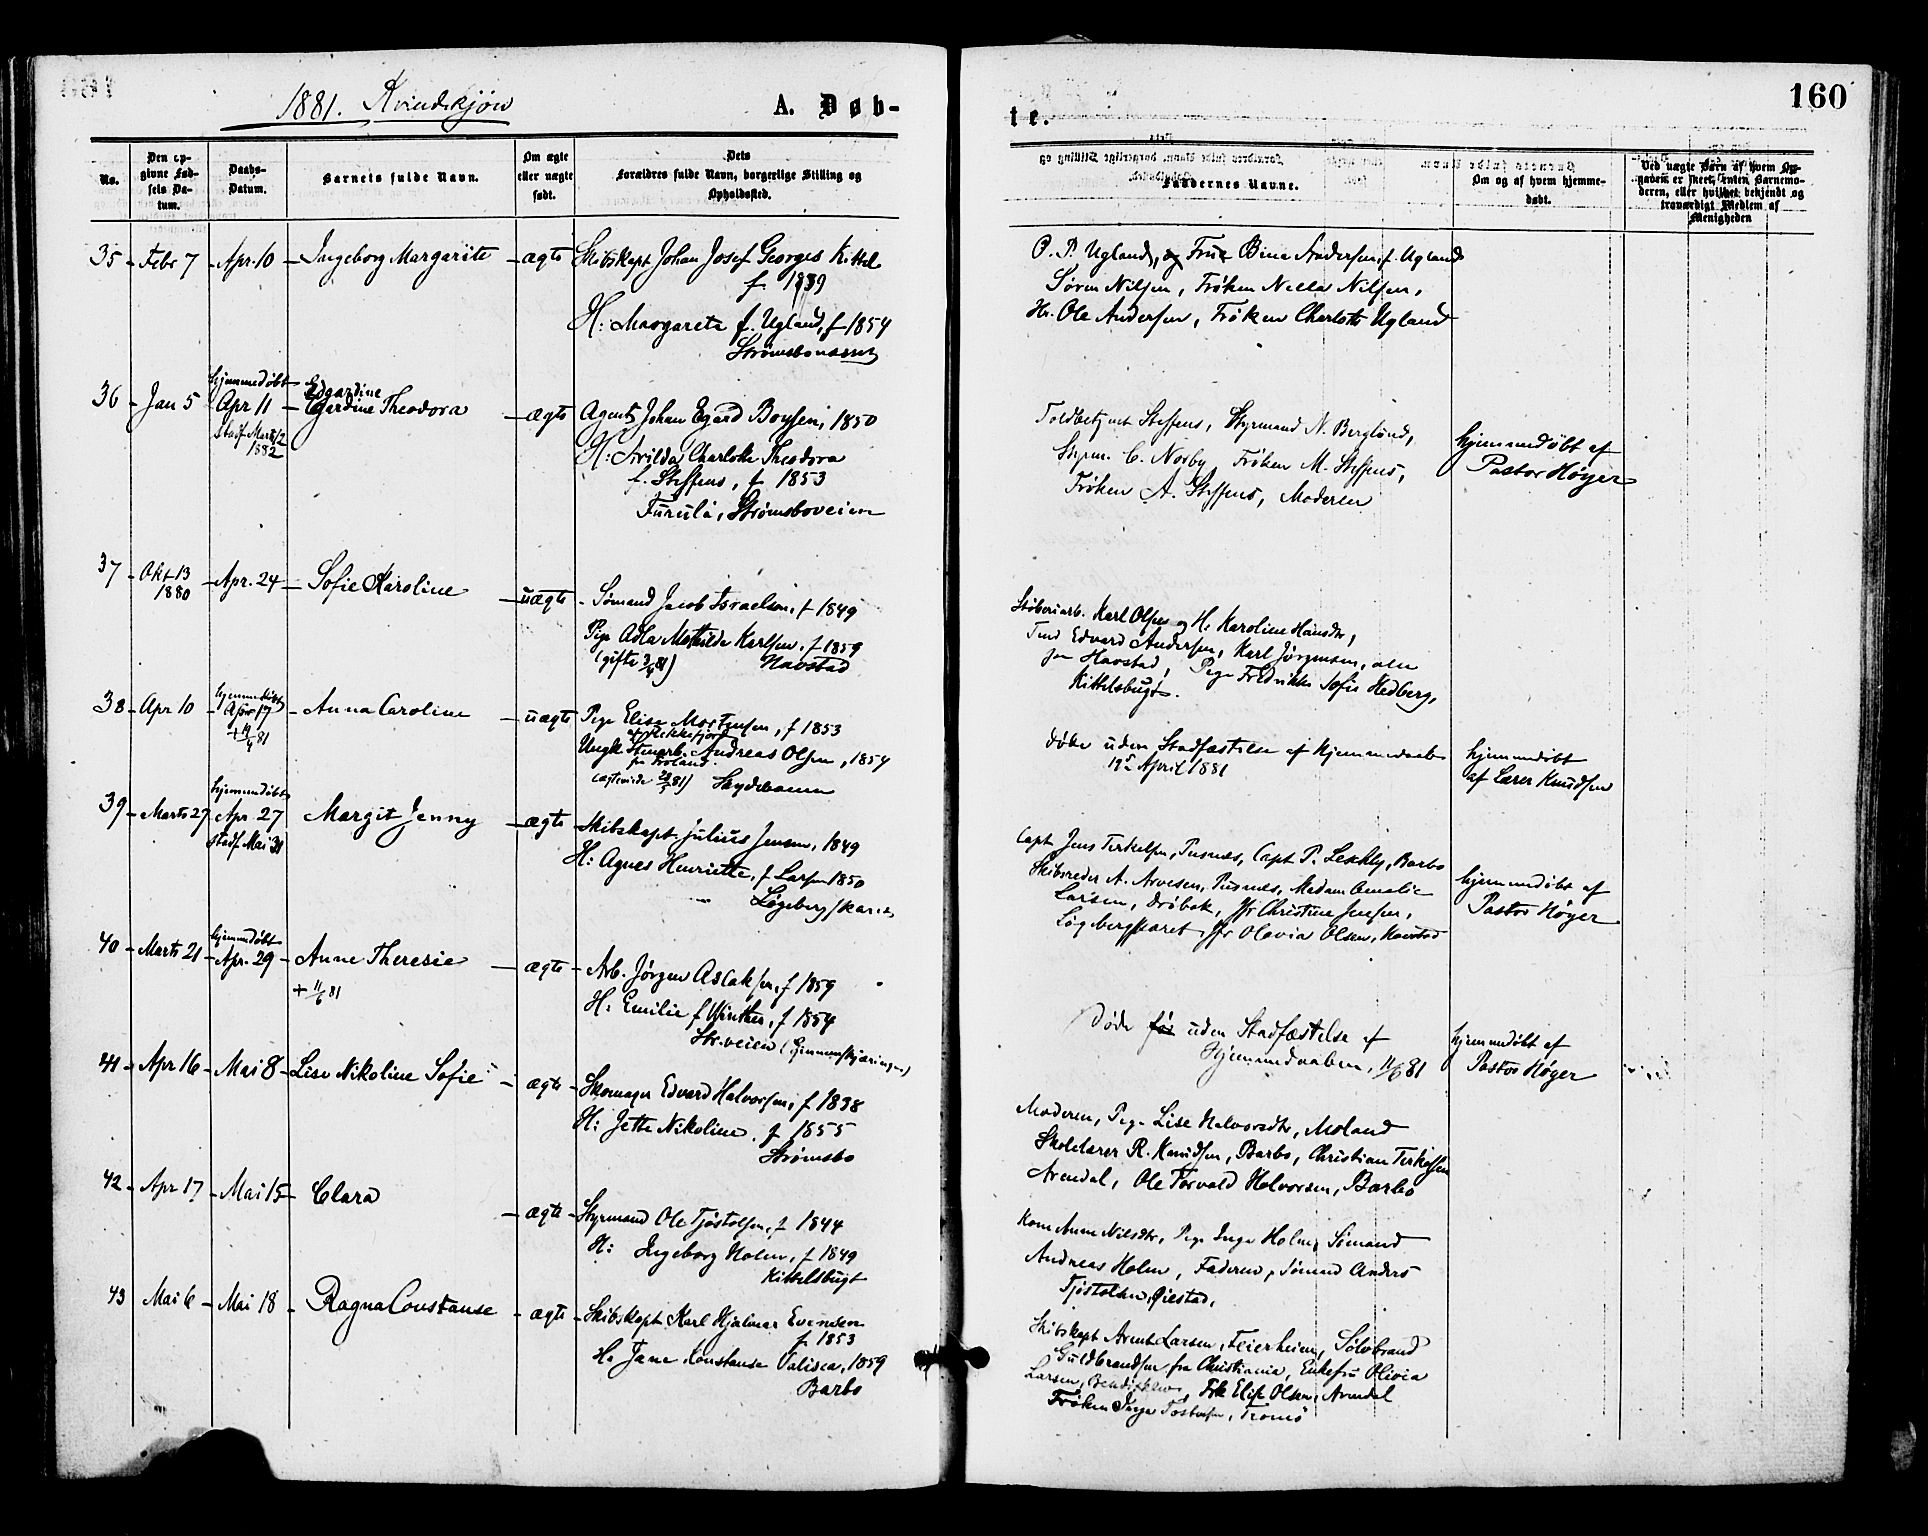 1881. Kvindekjøn
A. Døb-
te.
160
No.
Den op-
givne Fød-
sels Da-
tum.
Daabs-
Datum.
Barnets fulde Navn.
Om ægte
eller uægte
født.
Dets
Forældres fulde Navn, borgerlige Stilling og
Opholdssted.
Faddernes Navne.
Om og af hvem hjemme-
døbt.
Ved uægte Børn af hvem Op-
gaven er skeet, enten Barnemo-
deren, eller hvilket bekjendt og
troværdigt Medlem af
Menigheden
35 - Febr 7 - Apr. 10 - Ingeborg Margarite - ægte
Skibskapt Johan Josef Georges Kittel
f. 1839
H: Margarete f. Ugland, f 1854
Strømsbonesset
O. P. Ugland, og Frue Bina Andersen f. Ugland
Søren Nilsen, Frøken Nella Nilsen,
Hr. Ole Andersen, Frøken Charlotte Ugland
36 - Jan 5
hjemmedøbt
Apr 11
stadf Marts 12
1882
Edgardine
Egardine Theodora - ægte
Agent Johan Egard Boysen, 1850
H: Arilda Charlotte Theodora
f. Steffens, f 1853
Furuli, Strømsboveien
Toldbetjent Steffens, Styrmand N. Berglund,
Styrm. C. Nosby, Frøken M. Steffens,
Frøken A. Steffens, Moderen
hjemmedøbt af
Pastor Høyer
37 - Okt 13
1880
- Apr. 24 - Sofie Karoline - uægte
Sømand Jacob Israelsen, f 1849
Pige Adla Mathilde Karlsen, f 1859
(gifte 3/4 81) Havstad
Støberiarb. Karl Olsen og H. Karoline Hansdtr,
Tmd Edvard Andersen, Karl Jørgensen, alle
fra Havstad, Pige Fredrikke Sofie Hedberg,
Kittelsbugt.
38 - Apr 10
hjemmedøbt
- Apr 17
+ 19/4 81
- Anna Caroline - uægte
Pige Elise Mortensen, f 1853
af Rekkefjord
Ungk. Stuearb. Andreas Olsen, 1854
fra Froland
(ægteviede 28/5 81) Skydebanen
døde uden Stadfæstelse af Hjemmedaaben
19de April 1881
hjemmedøbt
af Lærer Knudsen
39 - Marts 27
hjemmedøbt
Apr. 27
stadf Mai 31
Margit Jenny - ægte
Skibskapt. Julius Jensen, 1849
H: Agnes Henriette, f Larsen 1850
Løgebergskaret
Capt Jens Terkelsen, Pusnes, Capt P. Seckly, Barbo
Skibsreder A. Arvesen, Pusnes, Madam Amalie
Larsen, Drøbak, Jfr Christine Jensen,
Løgebergskaret, Jfr Olavia Olsen, Havstad
hjemmedøbt af
Pastor Høyer
40 - Marts 21
hjemmedøbt
- Apr. 29 - Anne Theresie - ægte
+ 11/6 81
Arb. Jørgen Aslaksen, f 1859
H: Emilie f Winther, f 1854
Str.veien (Gjennemskjæringen)
Døde før uden Stadfæstelse af
Hjemmedaaben, 11/6 81
hjemmedøbt af
Pastor Høyer
41 - Apr 16 - Mai 8 - Lise Nikoline Sofie - ægte
Skomager Edvard Halvorsen, f 1838
H: Jette Nikoline, f 1855
Strømsbo
Moderen, Pige Lise Halvorsdtr, Moland
Skolelærer R. Knudsen, Barbo, Christian Terkelsen
Arendal, Ole Torvald Halvorsen, Barbo
42 - Apr 17 - Mai 15 - Clara - ægte
Styrmand Ole Tjøstolsen, f 1844
H: Ingeborg Holm, f 1849
Kittelsbugt
Kone Anne Nilsdtr, Pige Inge Holm, Sømand
Andreas Holm, Faderen, Sømand Anders
Tjøstolsen, Øiestad.
43 - Mai 6 - Mai 18 - Ragna Constanse - ægte
Skibskapt Karl Hjalmar Evensen
f 1853
H: Jane Constanse Valisca, 1859
Barbo
Skibskapt Arent Larsen, Feierheien, Sølvbrand
Guldbrandsen fra Christiania, Enkefru Olivia
Larsen, Bendiksklev, Frk Elise Olsen, Arendal
Frøken Inga Tostensen, Tromø